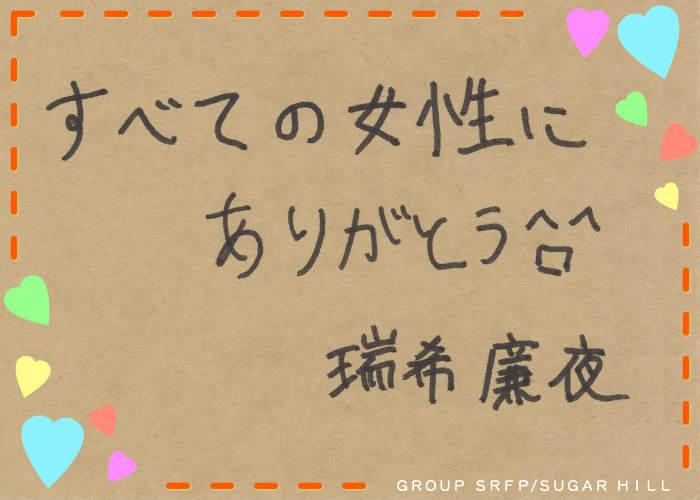 すべての女性に
ありがとう^ロ^
瑞希 廉夜
GROUP SRFP/SUGAR HILL